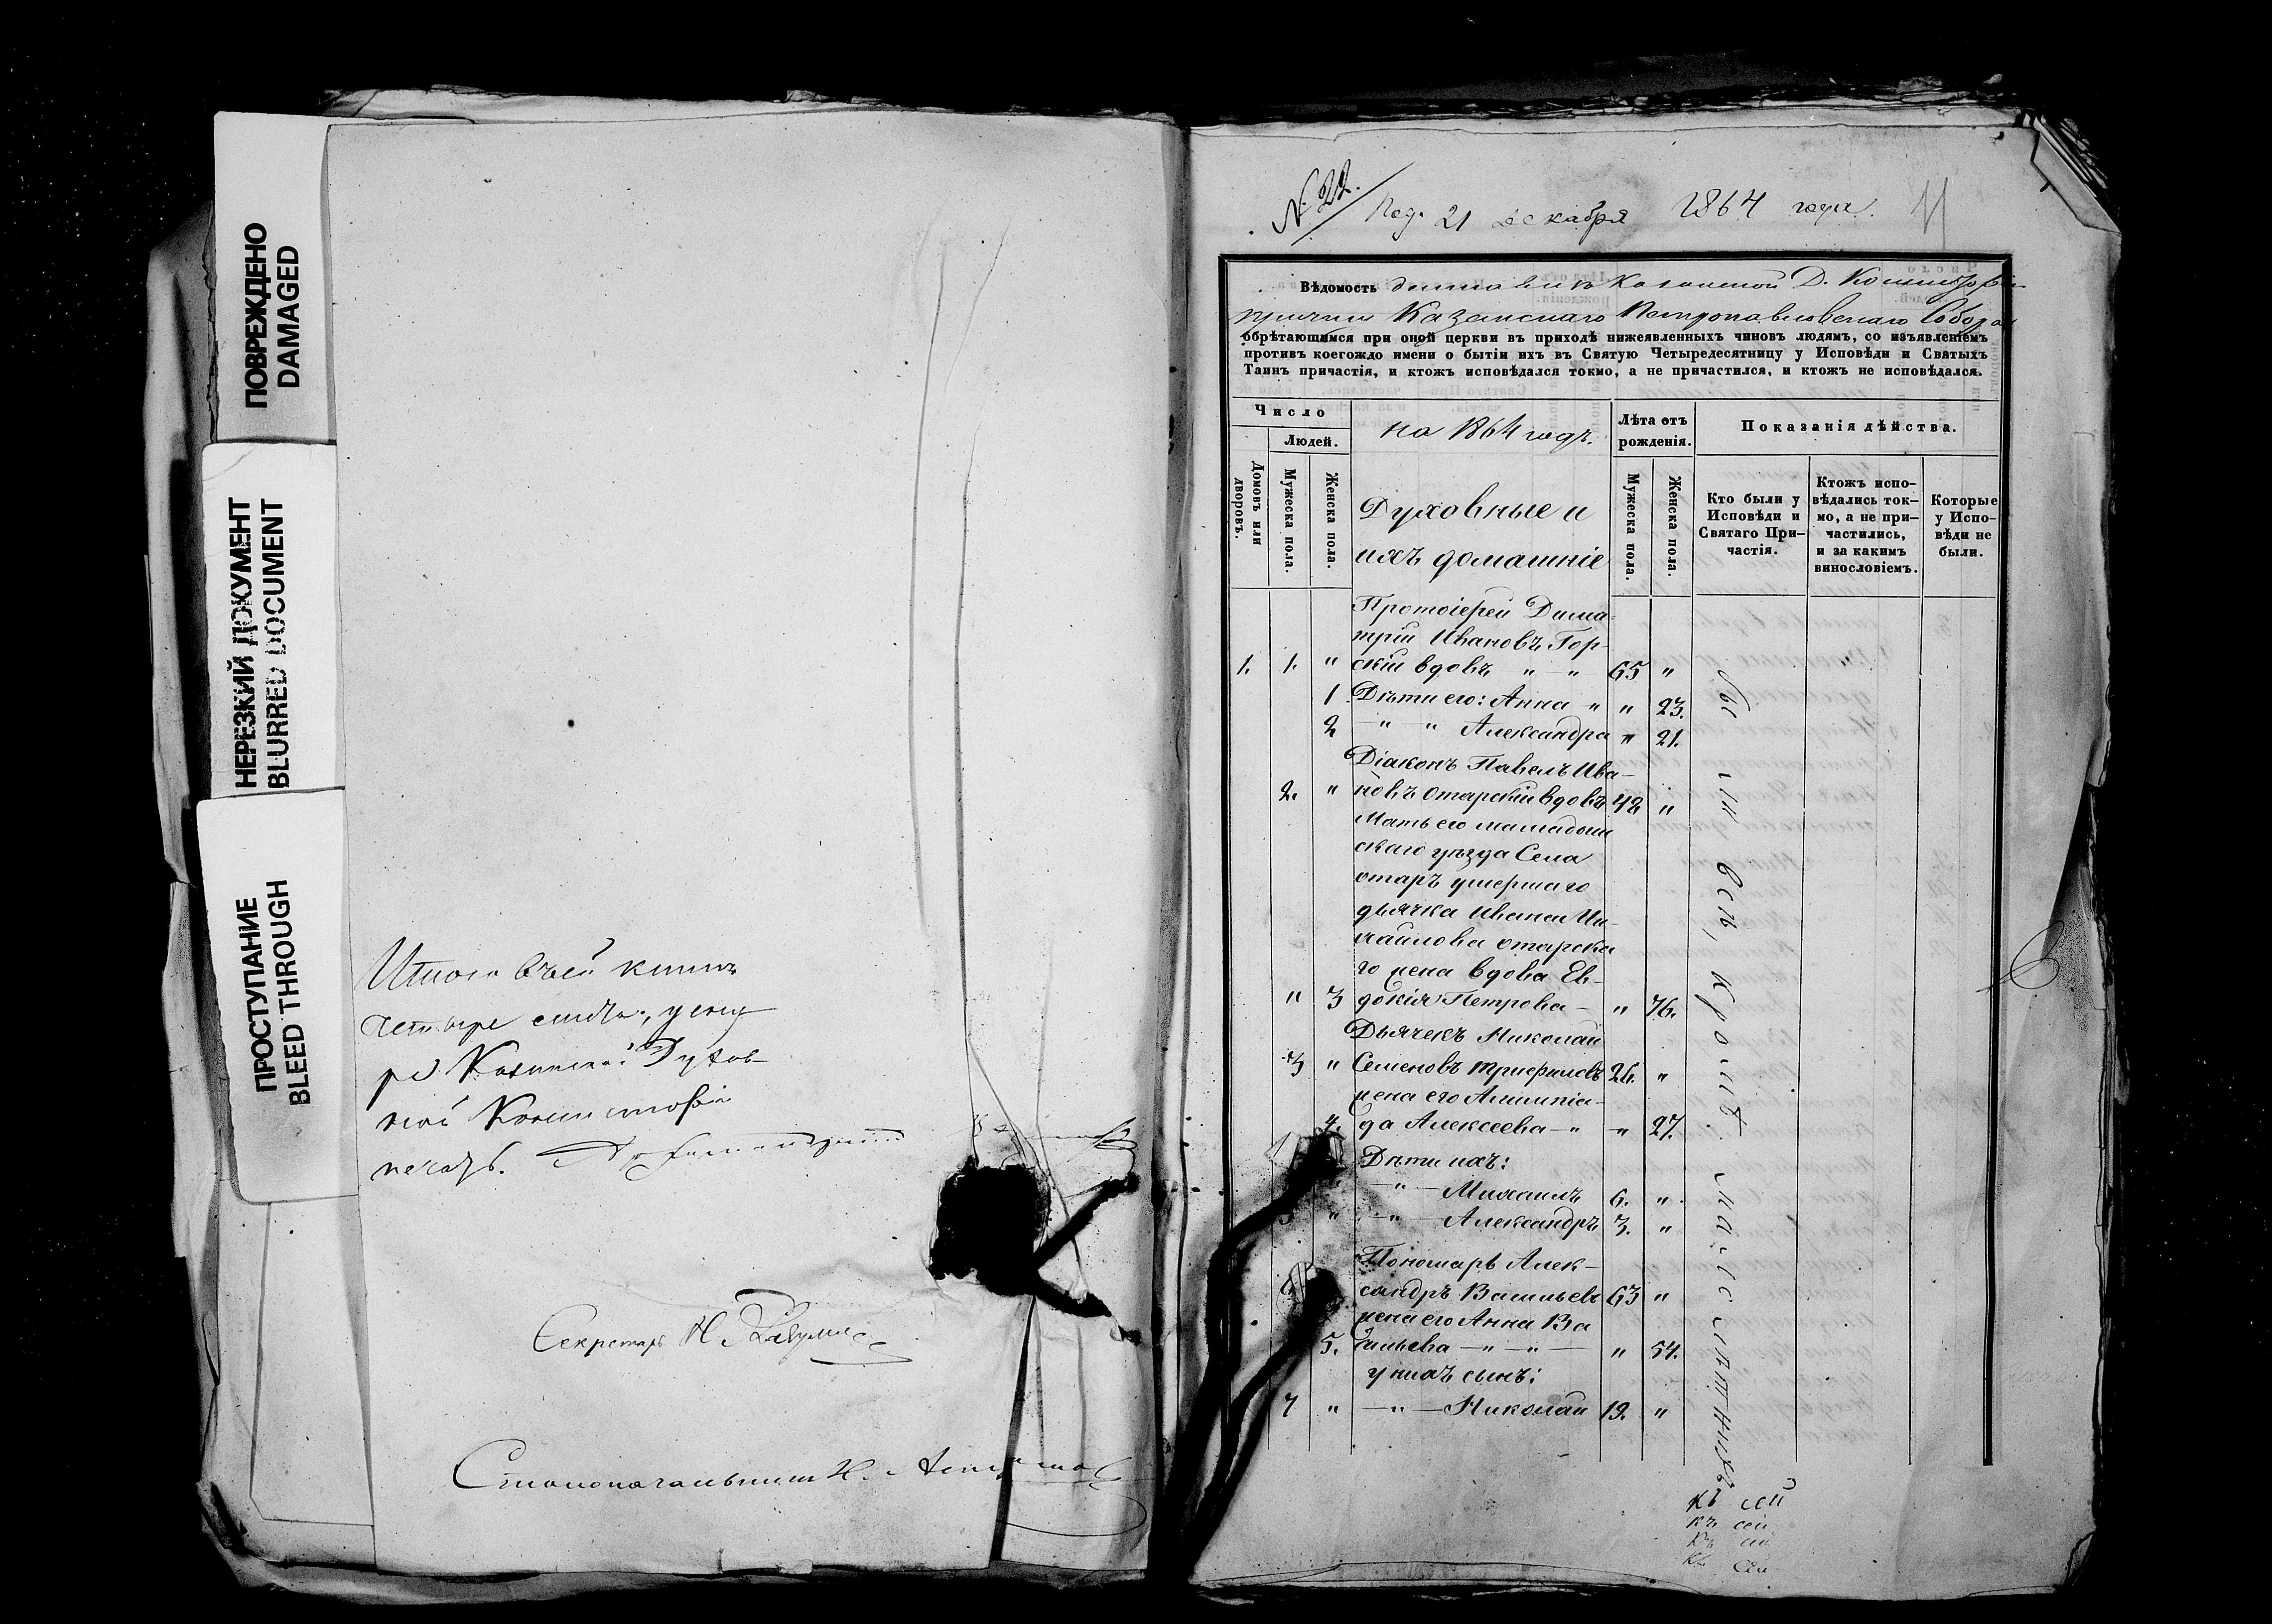 ПОВРЕЖДЕНО
DAMAGED
НЕРЕЗКИЙ ДОКУМЕНТ
BLURRED DOCUMENT
ПРОСТУПАНИЕ
BLEED THROUGH
Итого въ сей книгѣ
четыре
Казанской Духов-
ной Консисторіи
печать.
Секретарь Н.
Столоначальникъ Н.
№ 22.
Под. 21 декабря 1864 года.
Вѣдомость Казанской Д. Консисторіи
причта Казанскаго Петропавловскаго Собора
обрѣтающимся при оной церкви въ приходѣ нижеявленныхъ чиновъ людямъ, со изъявленіемъ
противъ коегождо имени о бытіи ихъ въ Святую Четыредесятницу у Исповѣди и Святыхъ
Таинъ причастія, и ктожъ исповѣдался токмо, а не причастился, и ктожъ не исповѣдался.
Число
Людей.
Домовъ или дворовъ.
Мужеска пола.
Женска пола.
на 1864 годъ.
Духовные и
ихъ домашніе
Лѣта отъ
рожденія.
Мужеска пола.
Женска пола.
Показанія дѣйства.
Кто были у
Исповѣди и
Святаго При-
частія.
Ктожъ испо-
вѣдались ток-
мо, а не при-
частились,
и за какимъ
винословіемъ.
Которые
у Испо-
вѣди не
были.
Протоіерей Дими-
трій Ивановъ Гор-
1. 1. " скій вдовъ " " 65 "
1 Дѣти его: Анна " " 23.
2 " " Александра " 21.
Діаконъ Павелъ Ива-
2. " новъ Отарскій вдовъ 42 "
Мать его мамадыш
скаго уѣзда Села
Отаръ умершаго
дьячка Ивана Ми-
хайлова Отарска
го жена вдова Ев-
" 3 докія Петрова - " 76.
Дьячекъ Николай
3 " Семеновъ Трифиловъ 26. "
жена его Алимпіа-
4. да Алексеева - " " 27.
Дѣти ихъ:
" Михаилъ 6. "
5 " " Александръ 3. "
Пономарь Алек-
6 сандръ Васильевъ 63 "
жена его Анна Ва
5. сильева - " - " " 54.
у нихъ сынъ:
7 " " Николай 19. "
были всѣ, кромѣ малолѣтнихъ
къ сей
къ сей
къ сей
къ сей